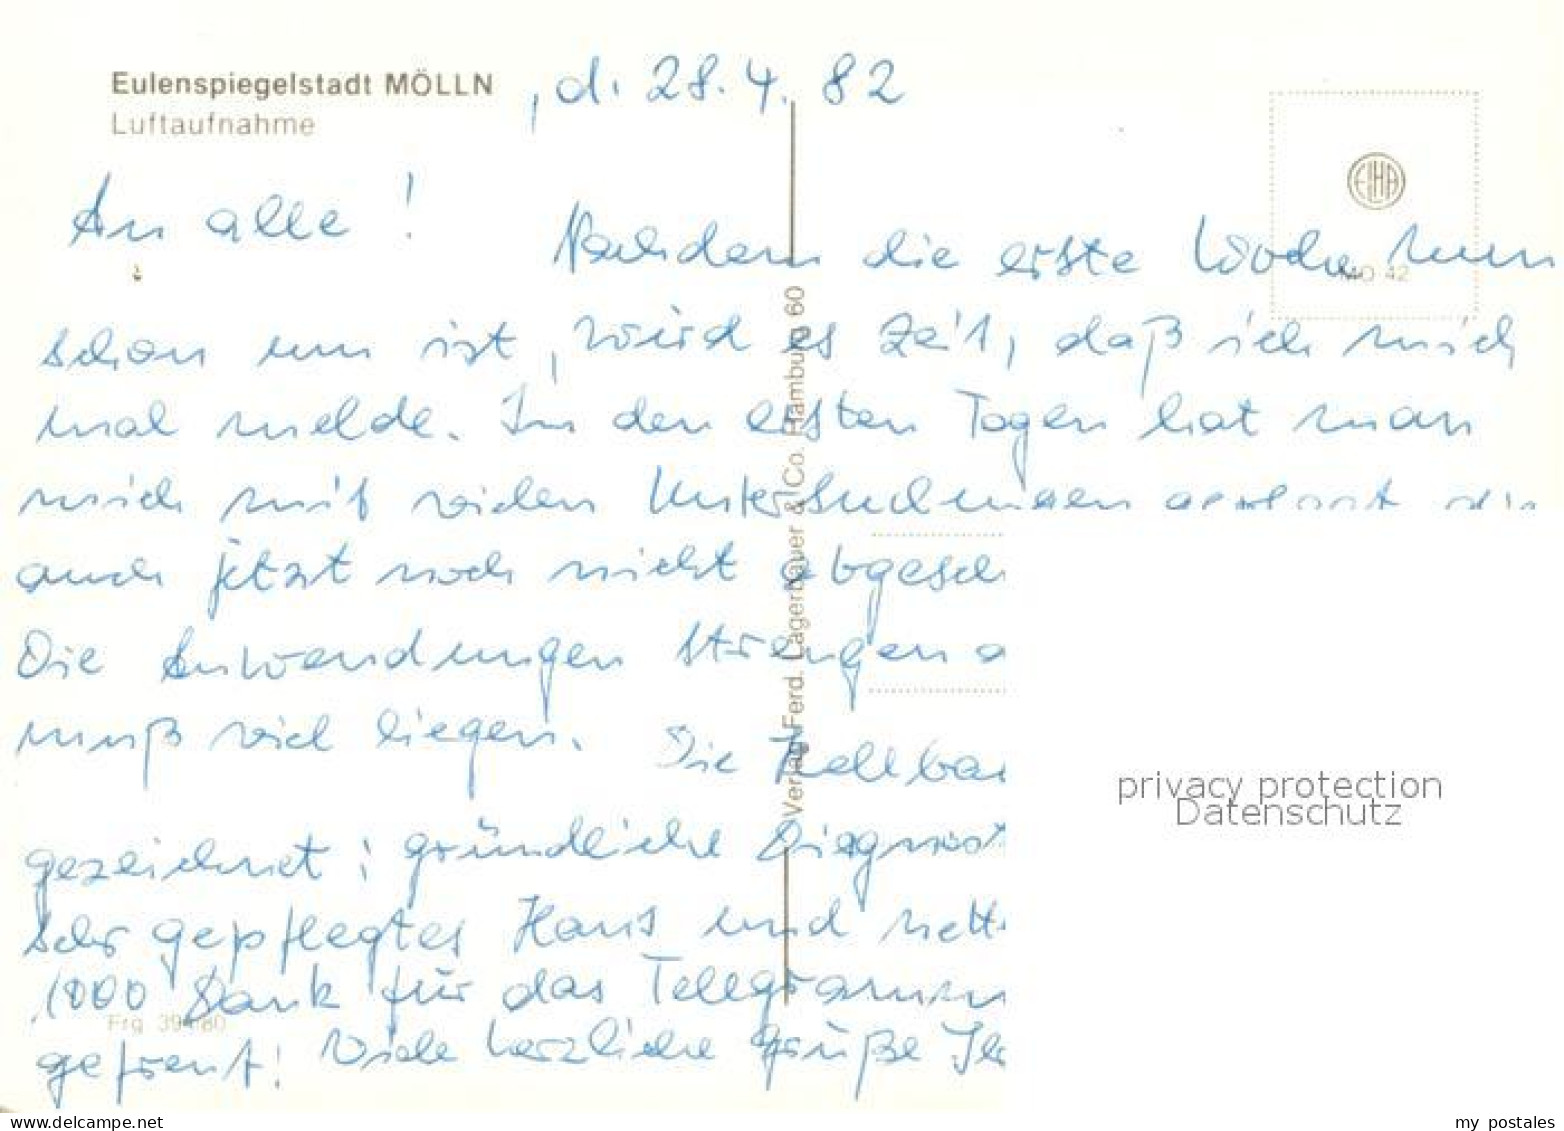 Eulenspiegelstadt MÖLLN , d. 28.4.82
Luftaufnahme
An alle!
Nachdem die erste Woche nun
schon um ist, wird es Zeit, daß ich mich
mal melde. In den ersten Tagen hat man
mich mit vielen Untersuchungen geplagt, die
auch jetzt noch nicht abgesch
Die Anwendungen strengen a
muß viel liegen. Die
gezeichnet: gründliche Diagnost
sehr gepflegtes Haus und nett
1000 Dank für das Telegramm
gefreut! Viele herzliche Grüße
Verlag Ferd. Lagerbauer & Co. Hamburg 60
ELHA
MO 42
Frg. 394/80
privacy protection
Datenschutz
my postales